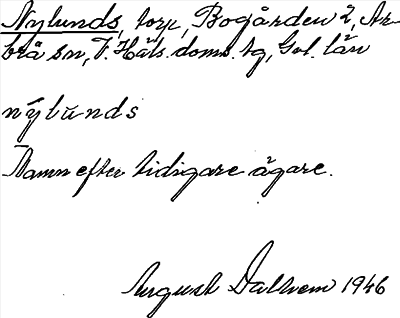 Nylunds, torp, Bogården 2, Ar-
brå sn, V. Häls. doms. tg, Gvl. län
nylunds
Namn efter tidigare ägare.
August Dalhem 1946